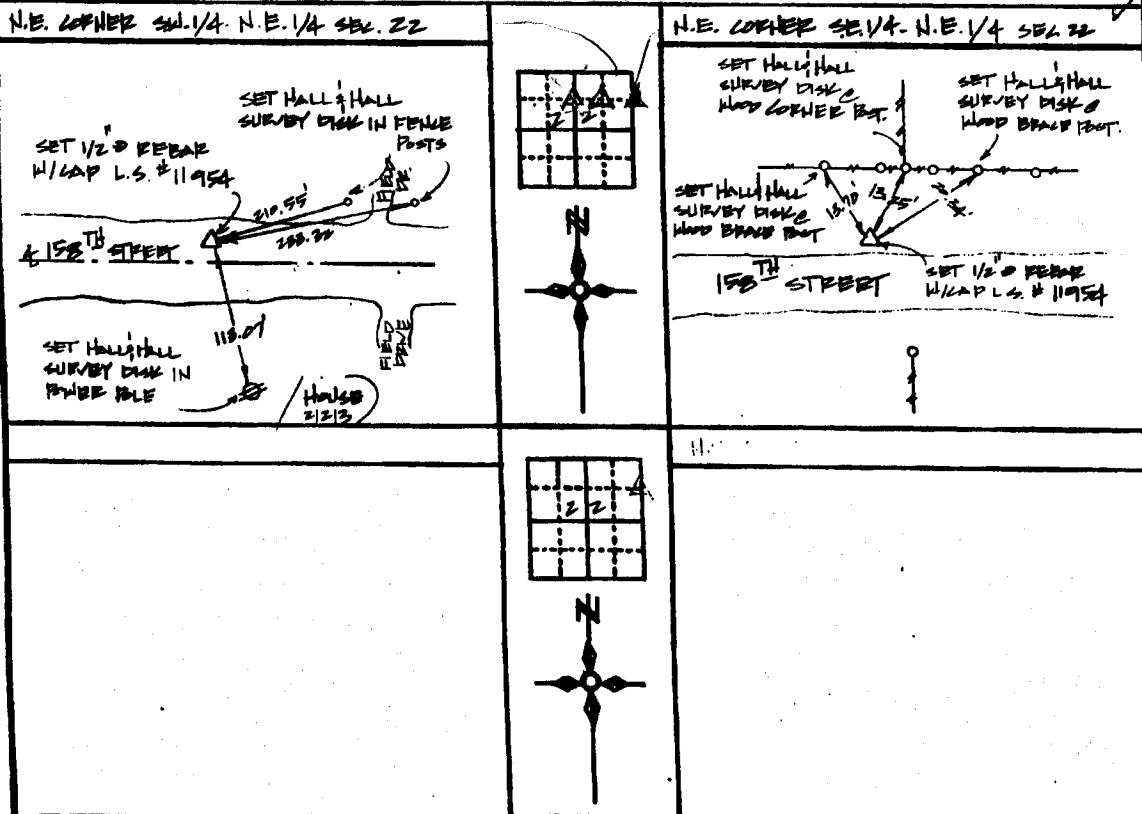 N.E. CORNER SW.1/4. N.E. 1/4 SEC. 22
SET HALL & HALL
SURVEY DISK IN FENCE
POSTS
SET 1/2" Ø REBAR
W/CAP L.S. # 11954
FIELD
DR.
210.55'
233.22
℄ 158TH STREET
113.07'
SET HALL & HALL
SURVEY DISK IN
POWER POLE
FIELD
DRIVE
HOUSE
2123
2 2
N
N.E. CORNER SE.1/4- N.E. 1/4 SEC. 22
SET HALL & HALL
SURVEY DISK @
WOOD CORNER POST.
SET HALL & HALL
SURVEY DISK @
WOOD BRACE POST.
SET HALL & HALL
SURVEY DISK @
WOOD BRACE POST
13.70'
13.25'
158TH STREET
SET 1/2" Ø REBAR
W/CAP L.S. # 11954
2 2
N